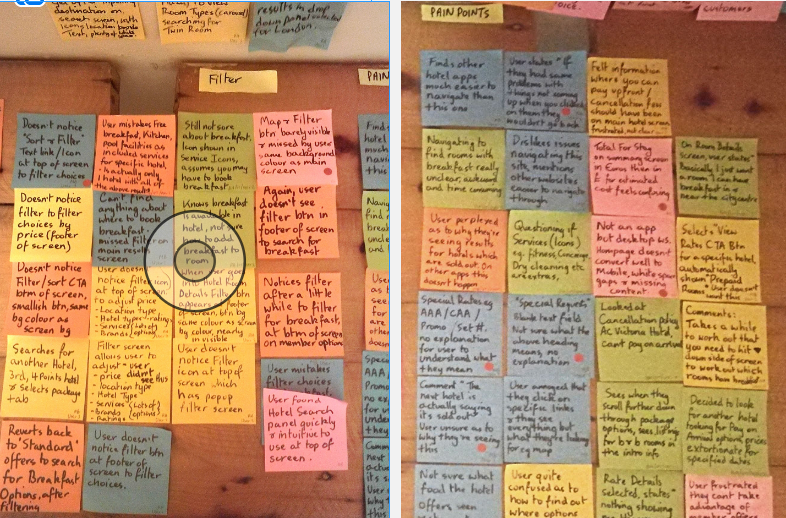 destination on.
search screen, with
icons, location brands
Text, photos of
Room Types (carousel)
searching for
Twin Room
results in drop
down panel selected
for London.
Filter
PAIN
Doesn't notice
"Sort & Filter"
Text link/icon
at top of screen
to filter choices
User mistakes free
breakfast, Kitchen,
pool facilities as
included services
for specific hotel.
Is actually only
1 hotel with all of
the above
Still not sore
about breakfast,
Icon shown in
Service Icons,
assumes you may
have to book
breakfast
Map & Filter
btn barely visible
& missed by user
same background
colour as main
screen
Doesn't notice
filter to filter
choices by
price (footer
of screen)
Can't find
anything about
where to book
breakfast.
missed filter on
main results
screen
Knows breakfast
is available in
hotel, not sure
how to add
breakfast to
room
Again, user
doesn't see
filter btn in
footer of screen
to search for
breakfast
Doesn't notice
Filter/sort CTA
btm of screen,
smallish btn, same
bg colour as
screen bg
User doesn't
notice filter icon
at top of screen
to adjust price
- Location type
- Hotel types + ratings
- Services (lots of)
- Brands (options)
when user goes
into Hotel Room
Details Filter btn
appears in footer
of screen, btn is
same colour as screen
bg colour, nearly
invisible
Notices filter
after a little
while to filter
for breakfast,
at btm of screen
on member options
Searches for
another Hotel,
3rd, 4 Points hotel
& Selects package
tab
Filter screen
allows user to
adjust - user
- price didn't
see this
- location type
- Hotel Type
- Services (Lots of)
- Brands (options)
- Ratings
User doesn't
notice Filter
icon at top of
screen which
has popup
filter screen
User mistakes
filter choices
User found
Hotel Search
panel quickly
& intuitive to
use at top of
screen.
Reverts back
to 'Standard'
offers to search
for Breakfast
Options, after
filtering
User doesn't
notice filter btn
at footer of
screen to filter
choices.
PAIN POINTS
customers
Finds other
hotel apps
much easier to
navigate than
this one
User states "If
they had same
problems with
things not coming
up when you clicked
on them they
wouldn't go back
Felt information
where you can
pay upfront/
Cancellation fees
should have been
on main hotel screen
frustrated, not clear
Navigating to
find rooms with
breakfast really
unclear, awkward
and time consuming
Dislikes issues
navigating this
site, mentions
other websites
easier to navigate
through
Total For Stay
on summary screen
in Euros then in
£ for estimated
cost feels confusing
On Room Details
screen, user states
"Basically I just want
a room I can have
breakfast in
near the city centre
User perplexed
as to why they're
seeing results
for hotels which
are sold out. On
other apps this
doesn't happen
Questioning of
Services (Icons)
eg. fitness, Concierge,
Dry cleaning etc
are extras,
Not an app
but desktop ws.
Homepage doesn't
convert well to
Mobile, white space
gaps & missing
content
Selects View
Rates CTA Btn
for a specific hotel,
automatically
shown "Prepaid
Rooms" User doesn't
want this
Special Rates eg
AAA/CAA/
Promo/Set #.
no explanation
for user to
understand what
they mean
"Special Requests"
blank text field
Not sure what
the above heading
means, no
explanation
Looked at
Cancellation policy
AC Victoria Hotel,
can't pay on arrival
Comments:
Takes a while
to work out that
you need to hit
down side of screen
to work out which
rooms have breakfast
Comment "The
next hotel is
actually saying
its sold out"
User unsure as to
why they're seeing
this
User annoyed that
they click on
specific links
& they see
everything but
what they're looking
for eg map
Sees when
they scroll further
down through
package
options, sees listing
for b & b rooms in
the intro info
Decided to look
for another hotel
looking for Pay on
Arrival options, prices
extortionate for
specified dates
Not sure what
food the hotel
offers
User quite
confused as to
how to find out
where options
Rate Details
selected, states
"nothing showing
User frustrated
they cant take
advantage of